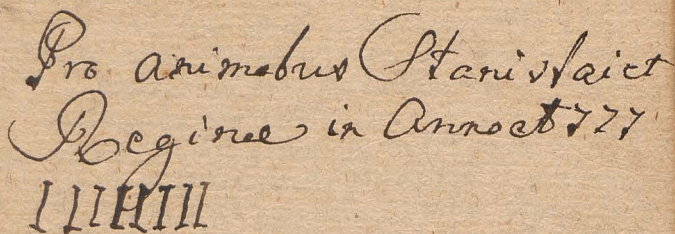 Pro animabus Stanislai et
Reginæ in Anno et 777
I I I I I I I I